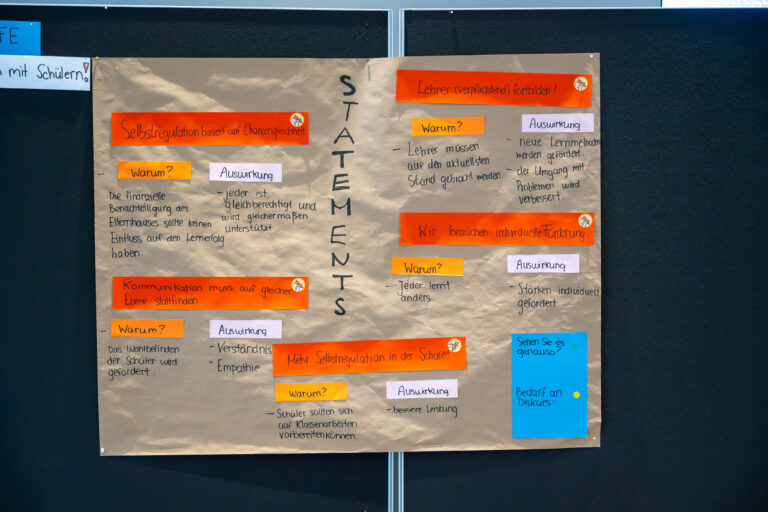 FE
mit Schülern!
STATEMENTS
Selbstregulation basiert auf Chancengleichheit
Warum?
Die finanzielle
Benachteiligung des
Elternhauses sollte keinen
Einfluss auf den Lernerfolg
haben.
Auswirkung
- jeder ist
gleichberechtigt und
wird gleichermaßen
unterstützt
Kommunikation muss auf gleicher
Ebene stattfinden
Warum?
Das Wohlbefinden
der Schüler wird
gefördert.
Auswirkung
- Verständnis
- Empathie
Mehr Selbstregulation in der Schule!
Warum?
- Schüler sollten sich
auf Klassenarbeiten
vorbereiten können.
Auswirkung
- bessere Leistung
Lehrer (verpflichtend) fortbilden!
Warum?
- Lehrer müssen
auf den aktuellsten
Stand gebracht werden.
Auswirkung
- neue Lernmethoden
werden gefördert.
- der Umgang mit
Problemen wird
verbessert.
Wir brauchen individuelle Förderung.
Warum?
- Jeder lernt
anders
Auswirkung
- Stärken individuell
gefördert
Sehen Sie es
genauso?
Bedarf an
Diskurs!